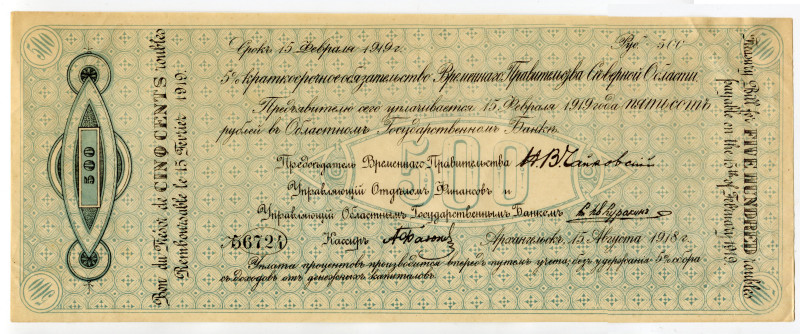 Срокъ 15 Февраля 1919 г. Руб. 500
5% краткосрочное обязательство Временнаго Правительства Сѣверной Области.
Предъявителю сего уплачивается 15 Февраля 1919 года пятьсотъ
рублей въ Областномъ Государственномъ Банкѣ.
500
Предсѣдатель Временнаго Правительства Н.В. Чайковский
Управляющій Отдѣломъ Финансовъ и
Управляющій Областнымъ Государственнымъ Банкомъ
56724 Кассиръ Архангельскъ, 15 Августа 1918 г.
Уплата процентовъ производится впередъ путемъ учета; безъ удержанія 5% сбора
съ доходовъ отъ денежныхъ капиталовъ.
500
Bon du Trésor de CINQ CENTS roubles
Remboursable le 15 Février 1919.
Treasury Bill for FIVE HUNDRED roubles
payable on the 15th of February 1919.